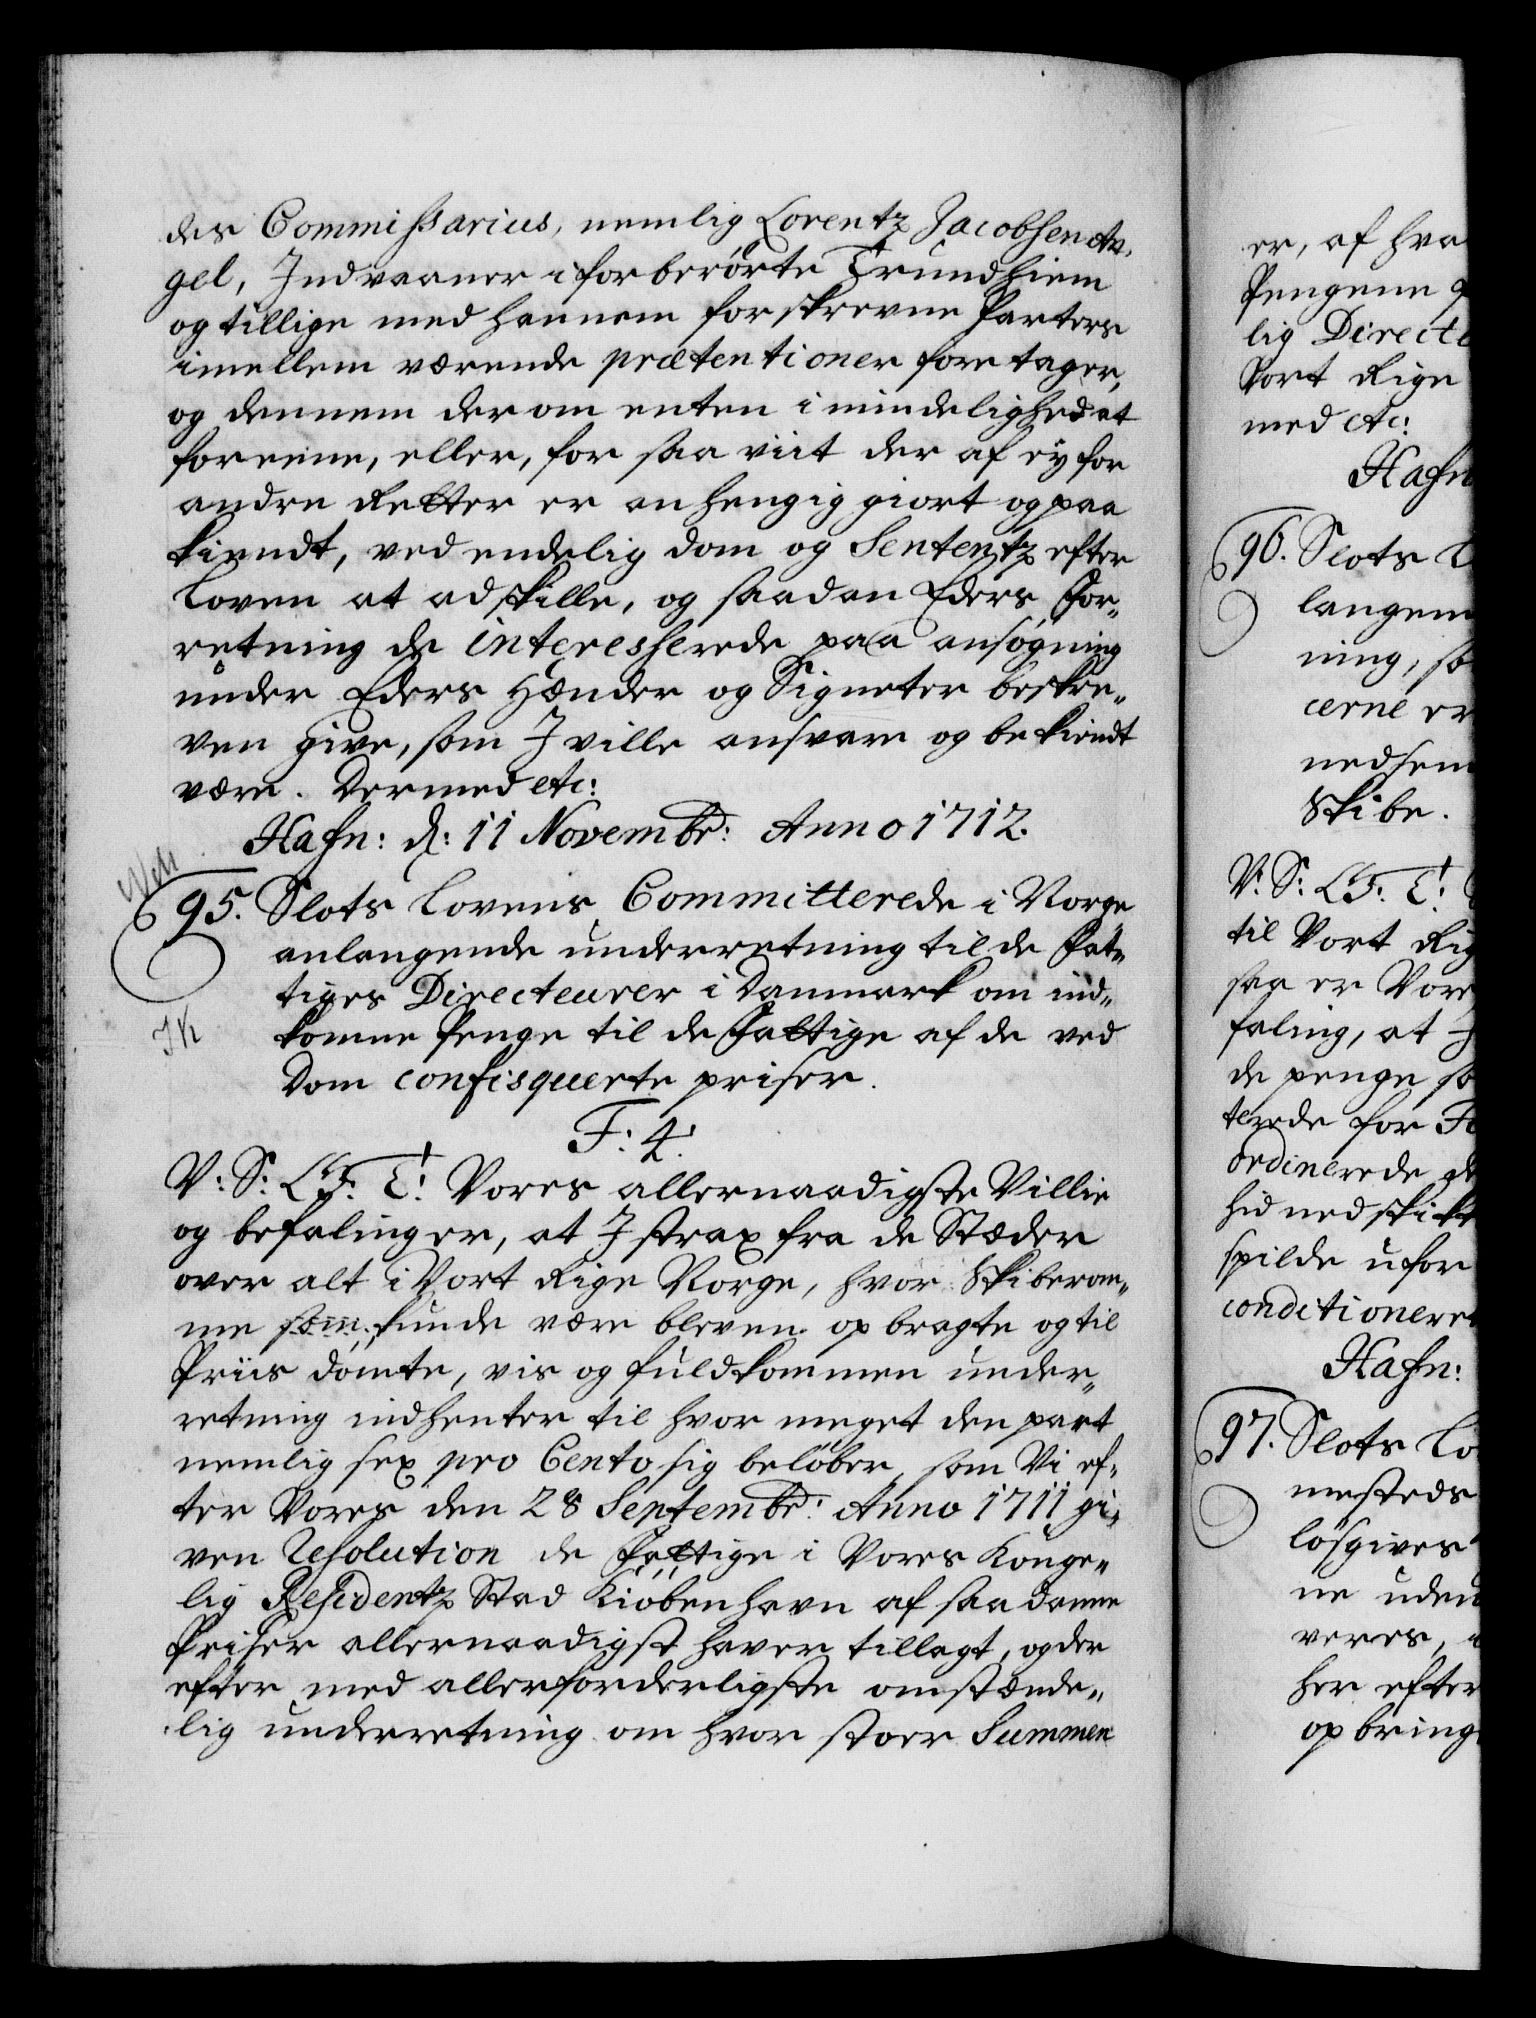 des Commissarius, nemlig Lorentz Jacobsen An-
gel, Indvaaner i forberørte Trundhiem
og tillige med hannem forskrevne Parters
imellem værende prætentioner foretager,
og dennem derom enten i mindelighed at
foreene, eller, for saa viit der af ey for
andre Retter er anhengig giort og paa
kiendt, ved endelig dom og Sententz efter
Loven at adskille, og saadan Eders For„
retning de interesserede paa ansøgning
under Eders Hænder og Signeter beskre„
ven give, som I ville ansvare og bekiendt
være. Dermed etc:
Hafn: d: 11 Novembr: Anno 1712.
95. Slots Lovens Committerede i Norge
anlangende underretning til de Fat„
tiges Directeurer i Danmark om ind„
komne Penge til de Fattige af de ved
Dom confisquerte priser.
F: 4.
V: S: G: T: Vores allernaadigste Villie
og befaling er, at I strax fra de Stæder
over alt i Vort Rige Norge, hvor Skiberom„
me som kunde være bleven opbragte og til
Priis dömte, vis og fuldkommen under„
retning indhenter til hvor meget den part
nemlig sex pro Cento sig beløber, som Vi ef„
ter Vores den 28 Septembr: Anno 1711 gi„
ven Resolution de Fattige i Vores Konge„
lig Residentz Stad Kiøbenhavn af saadanne
Priser allernaadigst haver tillagt, og der
efter med allerforderligste omstænde„
lig underretning om hvor stoer Summen
er, af hva
Pengene
lig Directe
Vort Rige
med etc:
Hafn
96. Slots L
langen
ning, so
cerne er
nedsen
Skibe.
V: S: G: T:
til Vort Rig
saa er Vore
faling, at I
de penge so
terede for
ordinerede
hid nedskikk
spilde ufor
conditioneret
Hafn:
97. Slots Lo
mesteds
løsgives
ne uden
veres,
her efter
opbring